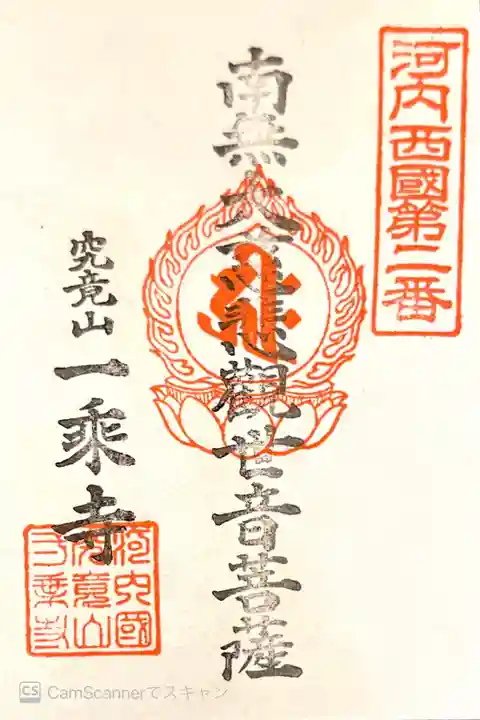 河内西國第二番
南無大慈大悲觀世音菩薩
究竟山
一乘寺
河内國
究竟山
一乗寺
CS CamScannerでスキャン